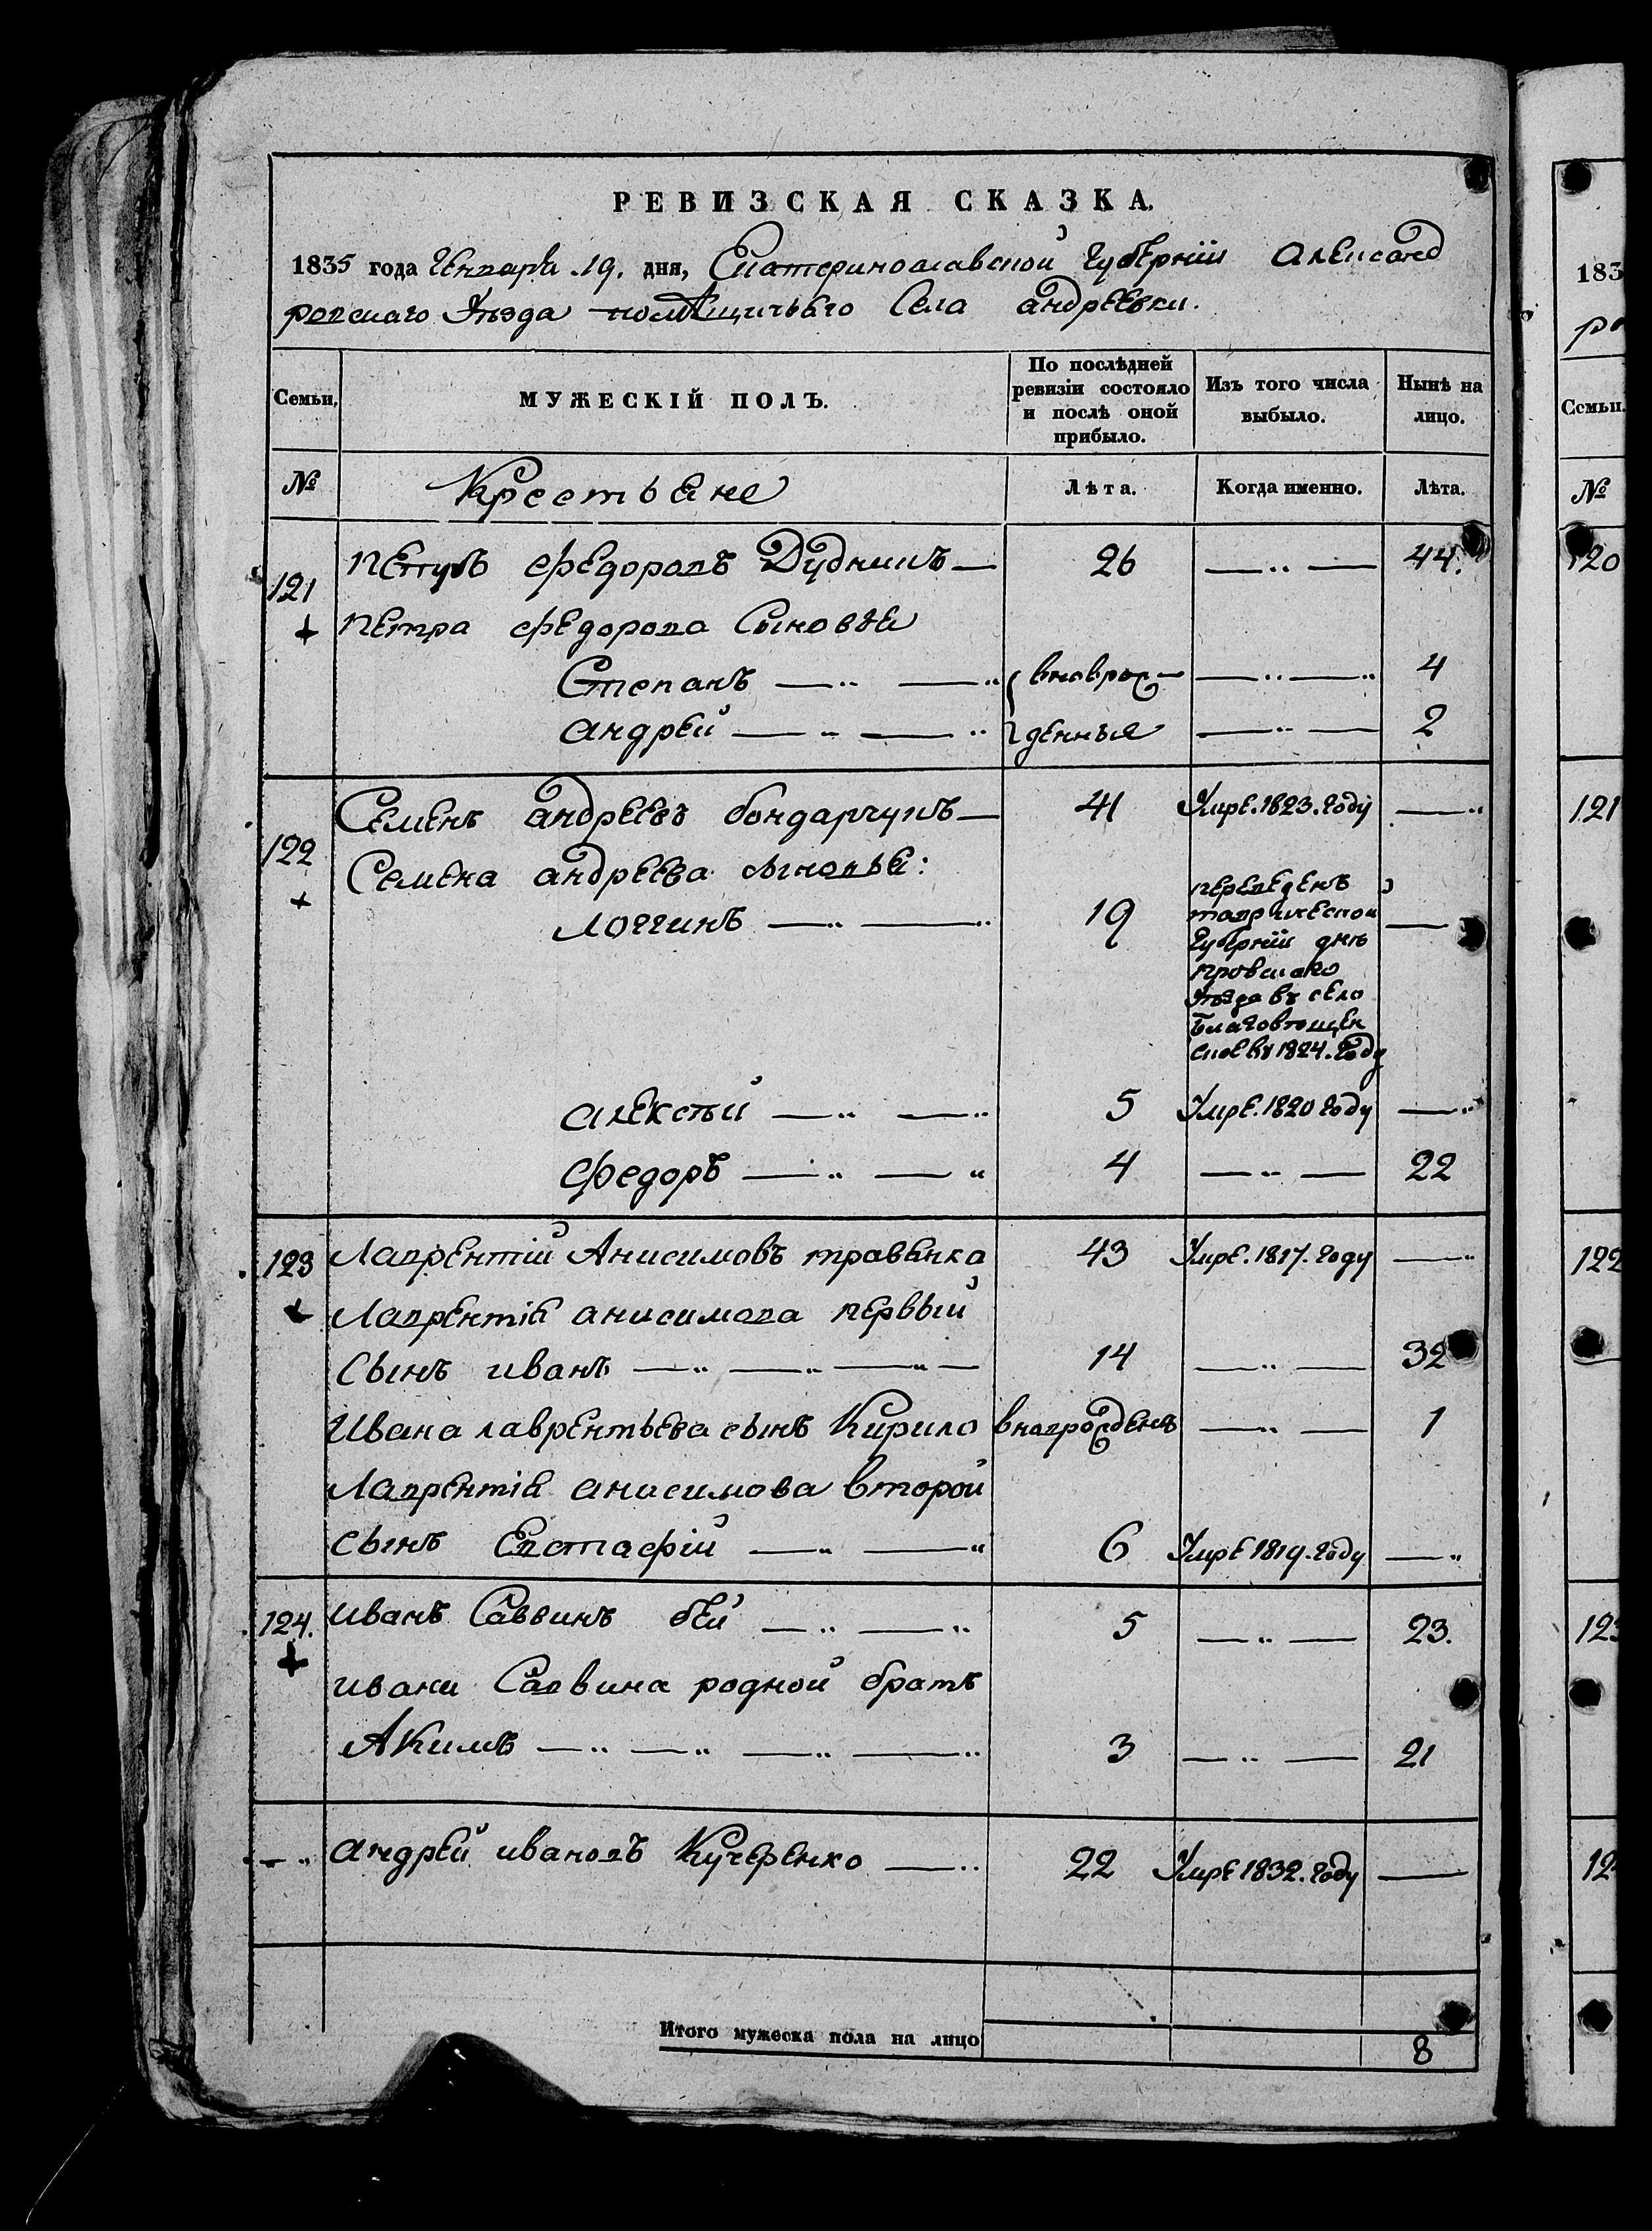 РЕВИЗСКАЯ СКАЗКА.
1835 года Генваря 19. дня, Екатеринославской Губернїи Александ
ровскаго Уѣзда помѣщичьяго Села андреевки.
Семьи.
МУЖЕСКІЙ ПОЛЪ.
По послѣдней ревизіи состояло и послѣ оной прибыло.
Изъ того числа выбыло.
Нынѣ на лицо.
№ Крестьяне Лѣта. Когда именно. Лѣта.
121 петръ федоровъ Дудникъ 26 44.
петра федорова Сыновъя
Степанъ вноврож 4
андрей денныя 2
122 Семенъ андреевъ бондарчукъ 41 Умре. 1823. году
Семена андреева сыновья:
логгинъ 19 переведенъ
таврической
губернїи дне
провскаго
уѣзда въ село
благовѣщен
ское въ 1824. году
алексѣй 5 Умре. 1820 году
федоръ 4 22
123 Лаврентїй Анисимовъ травянка 43 Умре. 1817. году
Лаврентїя анисимова первый
сынъ иванъ 14 32
Ивана лаврентьева сынъ Кирило вноврожденъ 1
Лаврентїя анисимова второй
сынъ Евстафїй 6 Умре 1819. году
124. иванъ Саввинъ бей 5 23.
ивана Саввина родной братъ
Акимъ 3 21
андрей ивановъ Кучеренко 22 Умре 1832. году
Итого мужеска пола на лицо 8
183
Семьи.
№
120
121
122
123
12